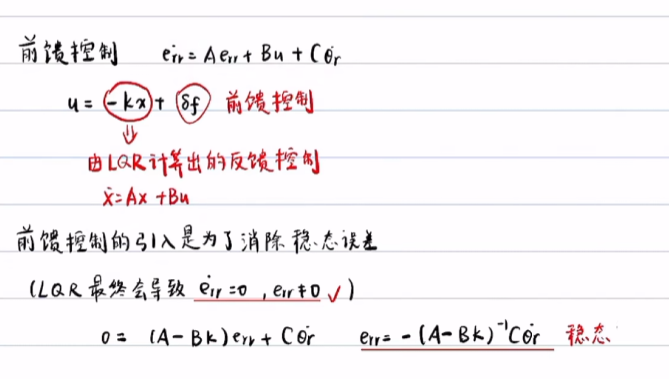 前馈控制 ėrr = Aerr + Bu + Cθ̇r
u = -kx + δf 前馈控制
由LQR计算出的反馈控制
ẋ=Ax+Bu
前馈控制的引入是为了消除稳态误差
(LQR最终会导致 ėrr=0, err≠0 ✓)
0 = (A-Bk)err + Cθ̇r err = -(A-Bk)⁻¹Cθ̇r 稳态